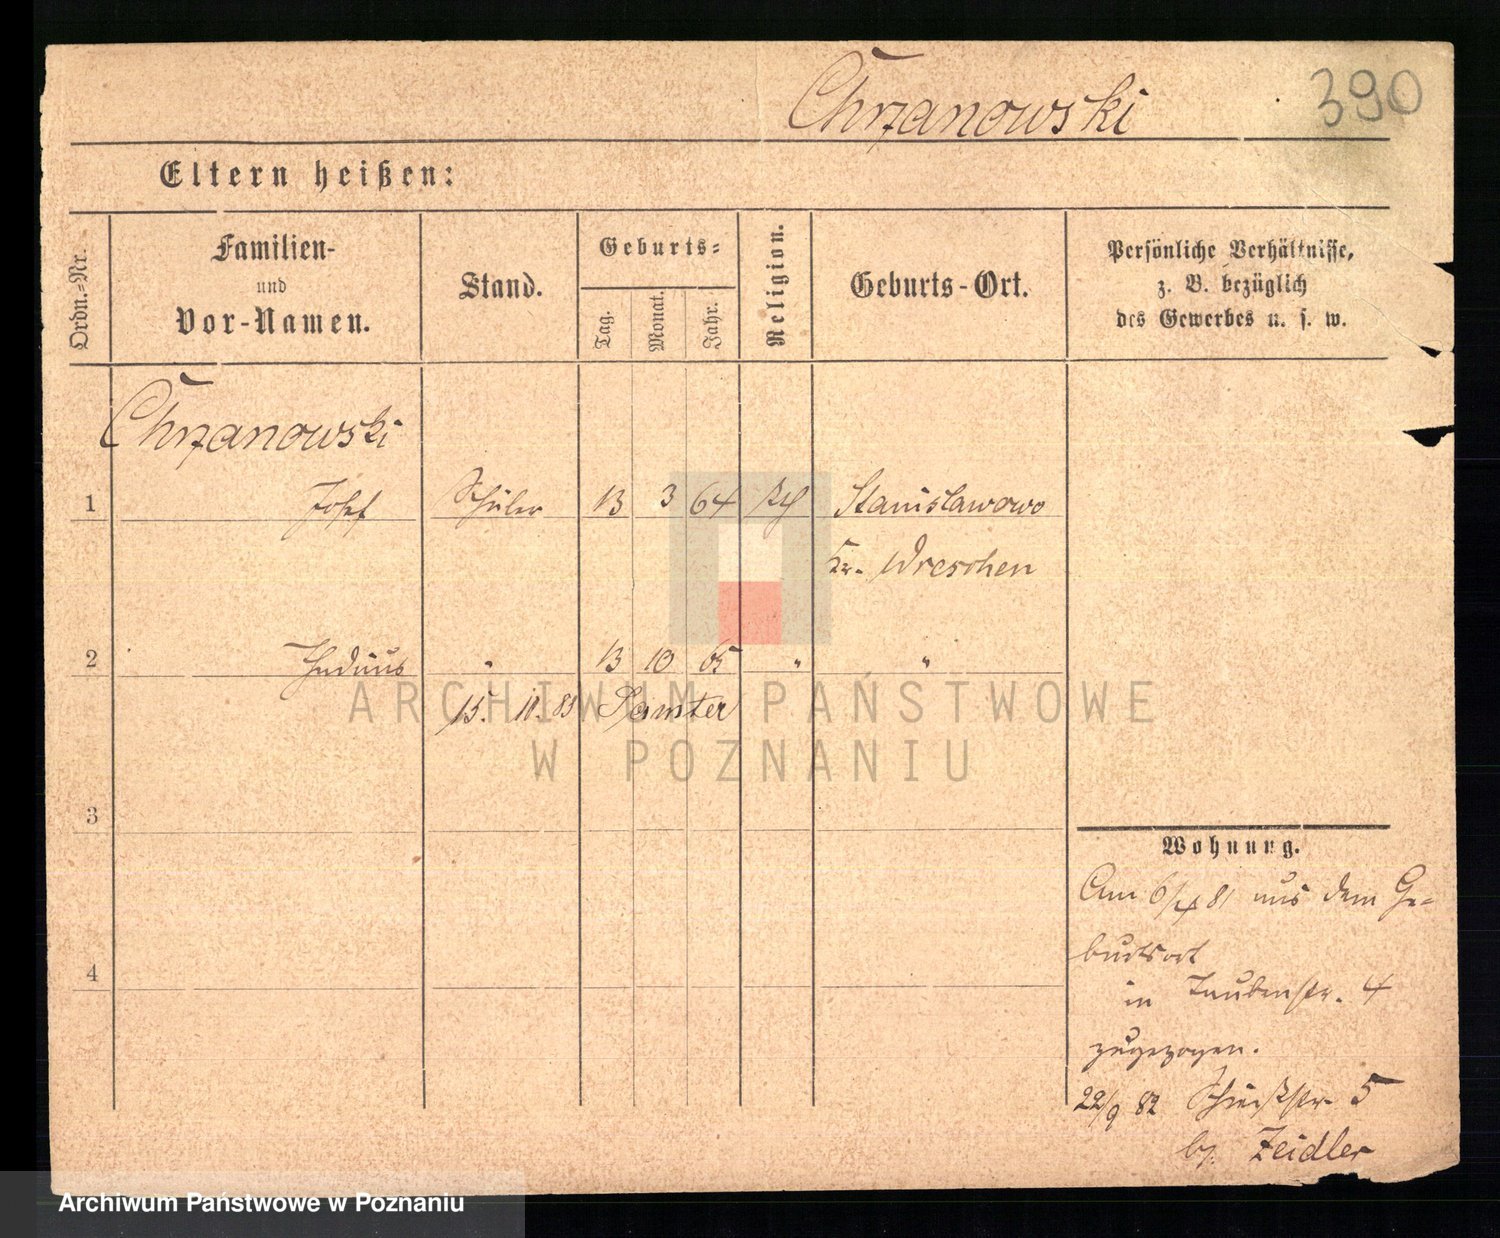 Chrzanowski
390
Eltern heißen:
Ordn.=Nr.
Familien-
und
Vor-Namen.
Stand.
Geburts=
Tag.
Monat.
Jahr.
Religion.
Geburts-Ort.
Persönliche Verhältnisse,
z. B. bezüglich
des Gewerbes u. s. w.
Chrzanowski
1 Josef Schüler 13 3 64 Stanislawowo
Kr. Wreschen
2 " 13 10 65 " "
15. 11. 83 Samter
3
4
Wohnung.
Am 6/4 81 aus dem Ge=
burtsort
in Taubenstr. 4
zugezogen.
22/9 82 Schießstr. 5
by. Zeidler
ARCHIWUM PAŃSTWOWE
W POZNANIU
Archiwum Państwowe w Poznaniu